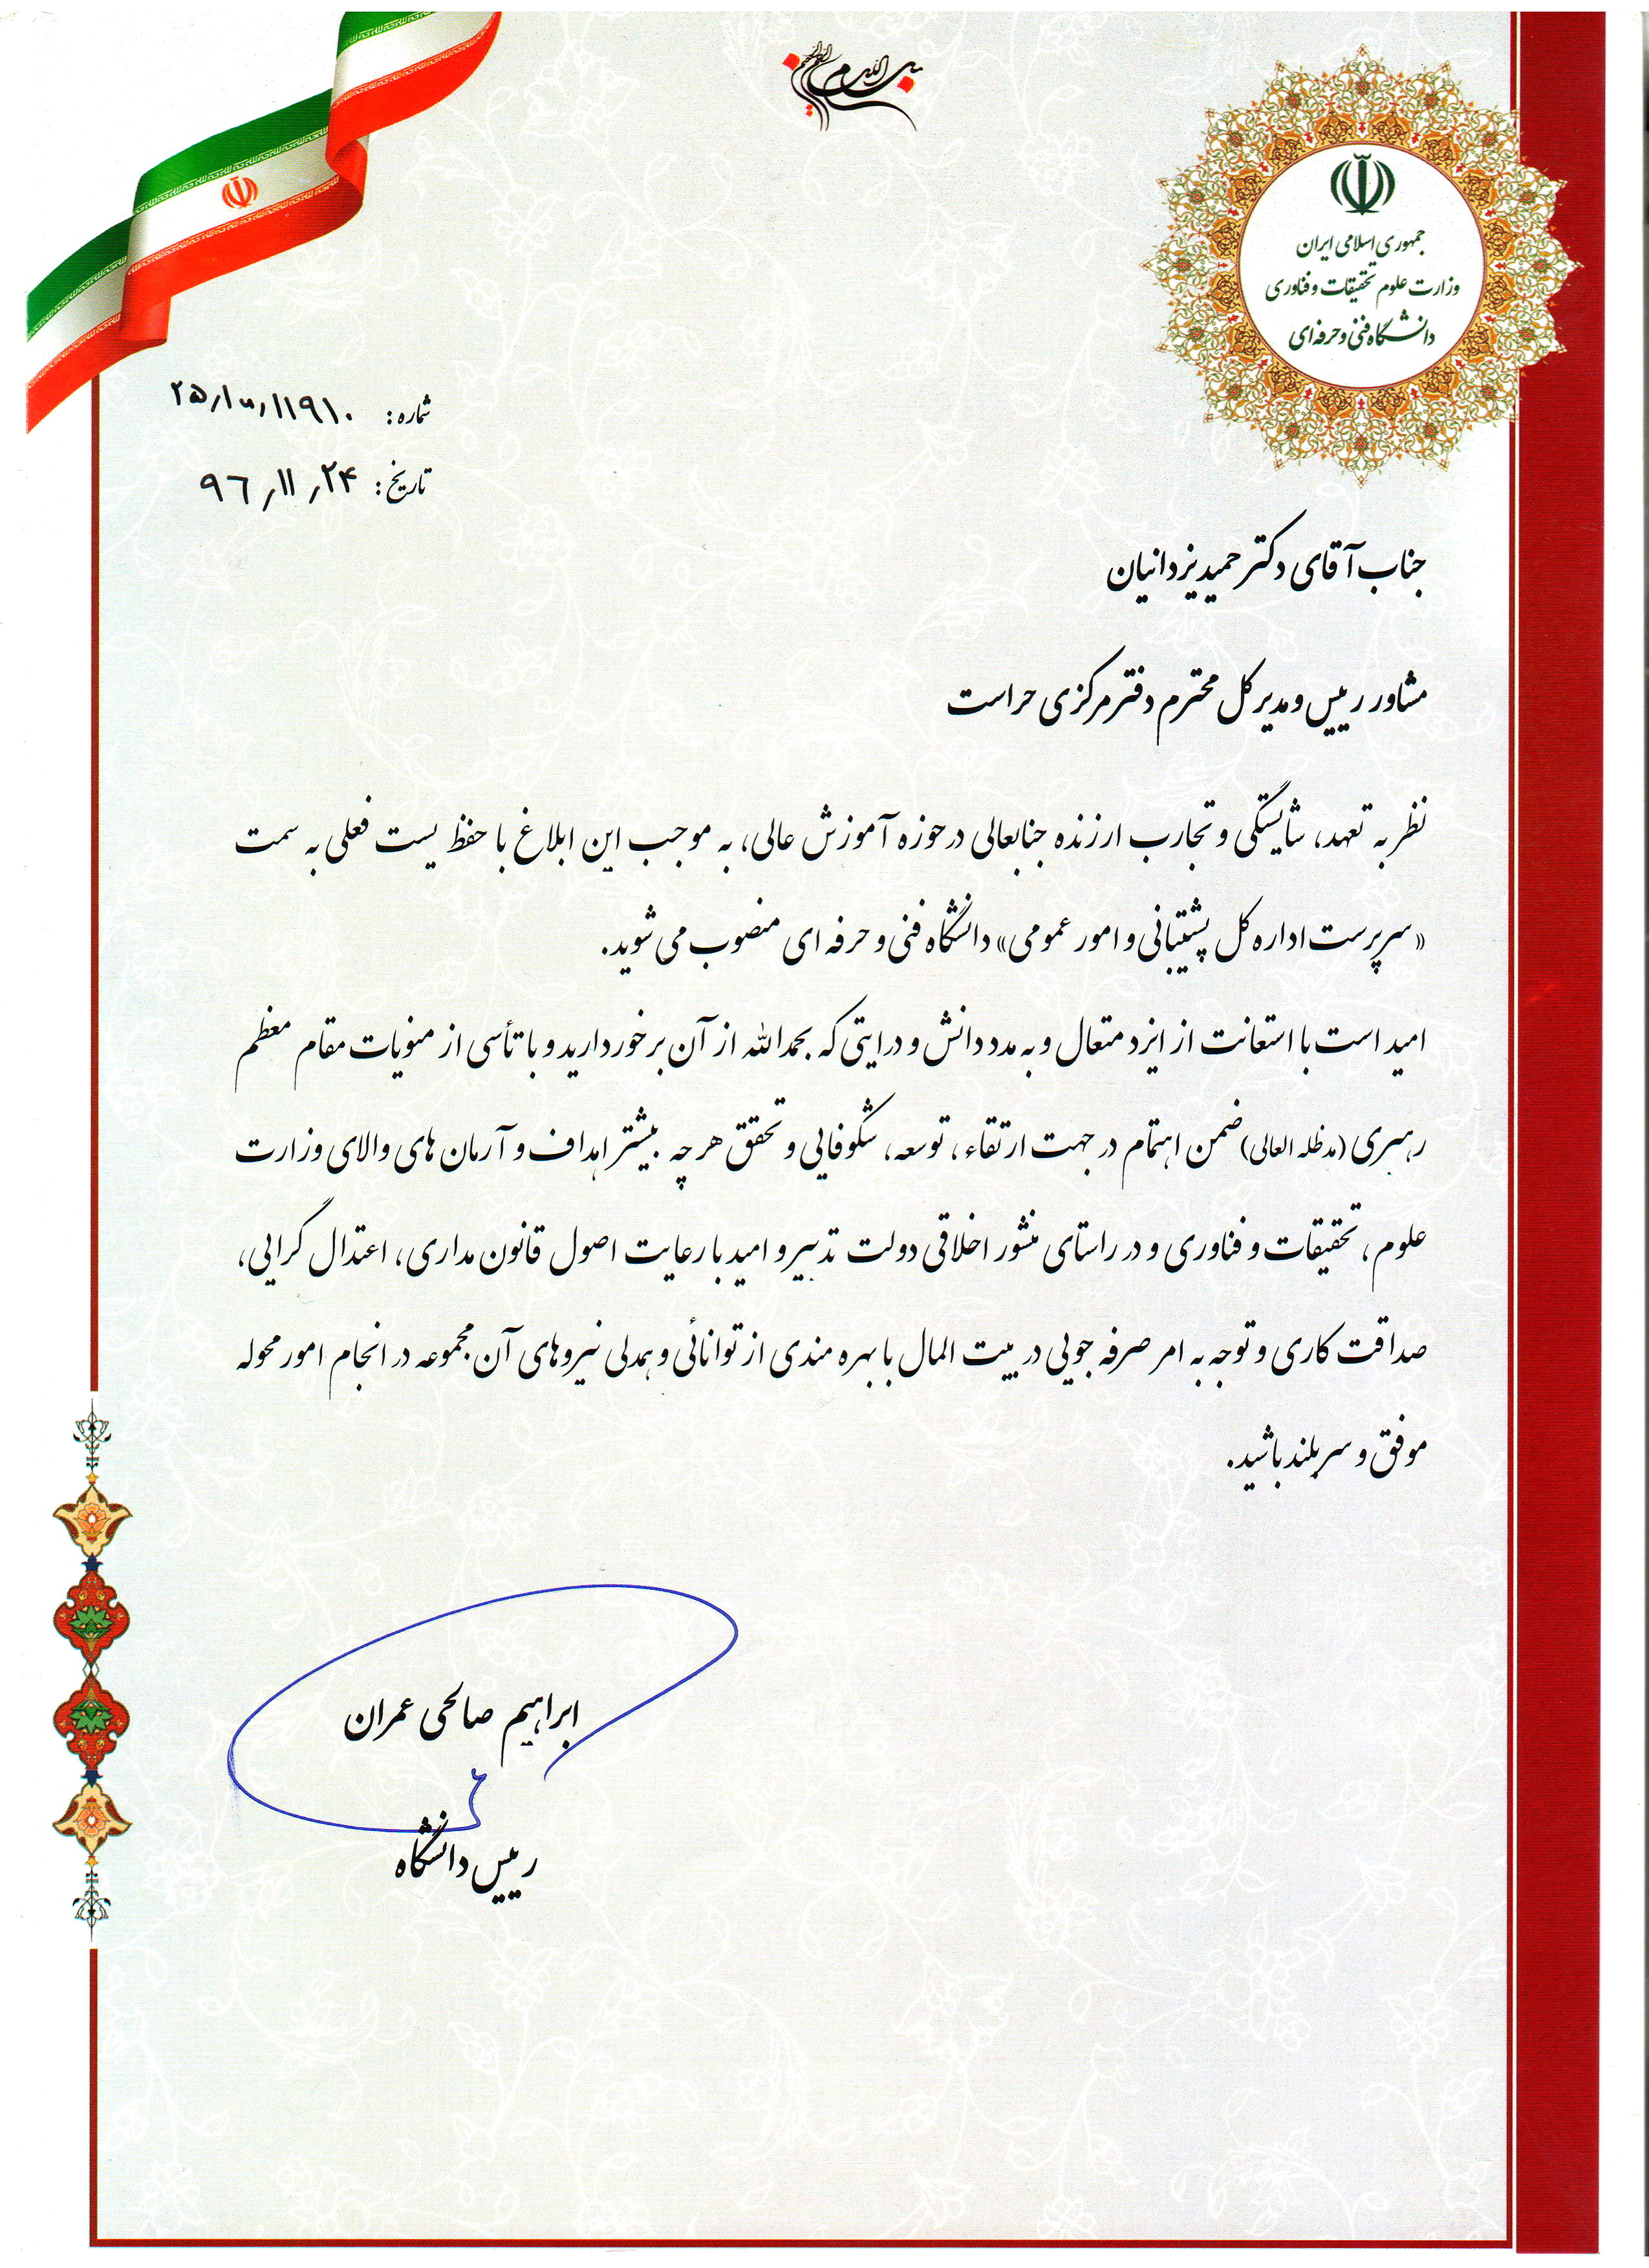 بسم الله الرحمن الرحیم
جمهوری اسلامی ایران
وزارت علوم تحقیقات و فناوری
دانشگاه فنی و حرفه‌ای
شماره:
تاریخ: ۹۶٫۱۱٫۲۴
جناب آقای دکتر حمید یزدانیان
مشاور رییس و مدیر کل محترم دفتر مرکزی حراست
نظر به تعهد، شایستگی و تجارب ارزنده جنابعالی در حوزه آموزش عالی، به موجب این ابلاغ با حفظ پست فعلی به سمت
«سرپرست اداره کل پشتیبانی و امور عمومی» دانشگاه فنی و حرفه ای منصوب می شوید.
امید است با استعانت از ایزد متعال و به مدد دانش و درایتی که بحمدالله از آن برخوردارید و با تأسی از منویات مقام معظم
رهبری (مدظله العالی) ضمن اهتمام در جهت ارتقاء، توسعه، شکوفایی و تحقق هر چه بیشتر اهداف و آرمان های والای وزارت
علوم، تحقیقات و فناوری و در راستای منشور اخلاقی دولت تدبیر و امید با رعایت اصول قانون مداری، اعتدال گرایی،
صداقت کاری و توجه به امر صرفه جویی در بیت المال با بهره مندی از توانائی و همدلی نیروهای آن مجموعه در انجام امور محوله
موفق و سربلند باشید.
ابراهیم صالحی عمران
رییس دانشگاه